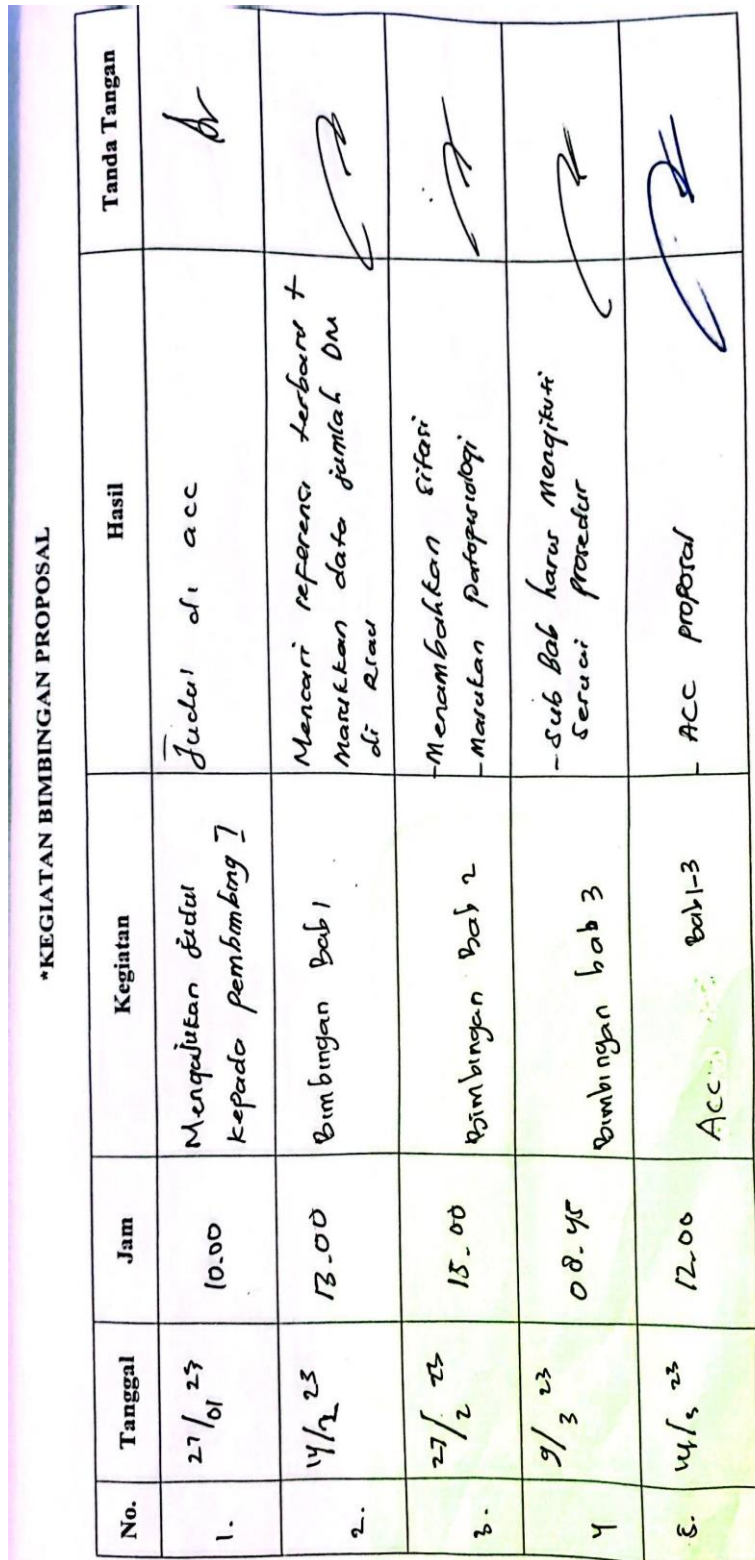 *KEGIATAN BIMBINGAN PROPOSAL
No. Tanggal Jam Kegiatan Hasil Tanda Tangan
1. 27/01 23 10.00 Mengajukan judul Judul di acc
kepada pembimbing I
2. 14/2 23 13.00 Bimbingan Bab 1 Mencari referensi terbaru +
Masukkan data jumlah DM
di Riau
3. 27/2 23 15.00 Bimbingan Bab 2 -Menambahkan sitasi
-Masukan patofisiologi
4 9/3 23 08.45 Bimbingan bab 3 -Sub Bab harus mengikuti
sesuai prosedur
5. 14/3 23 12.00 Acc Bab 1-3 - ACC proposal